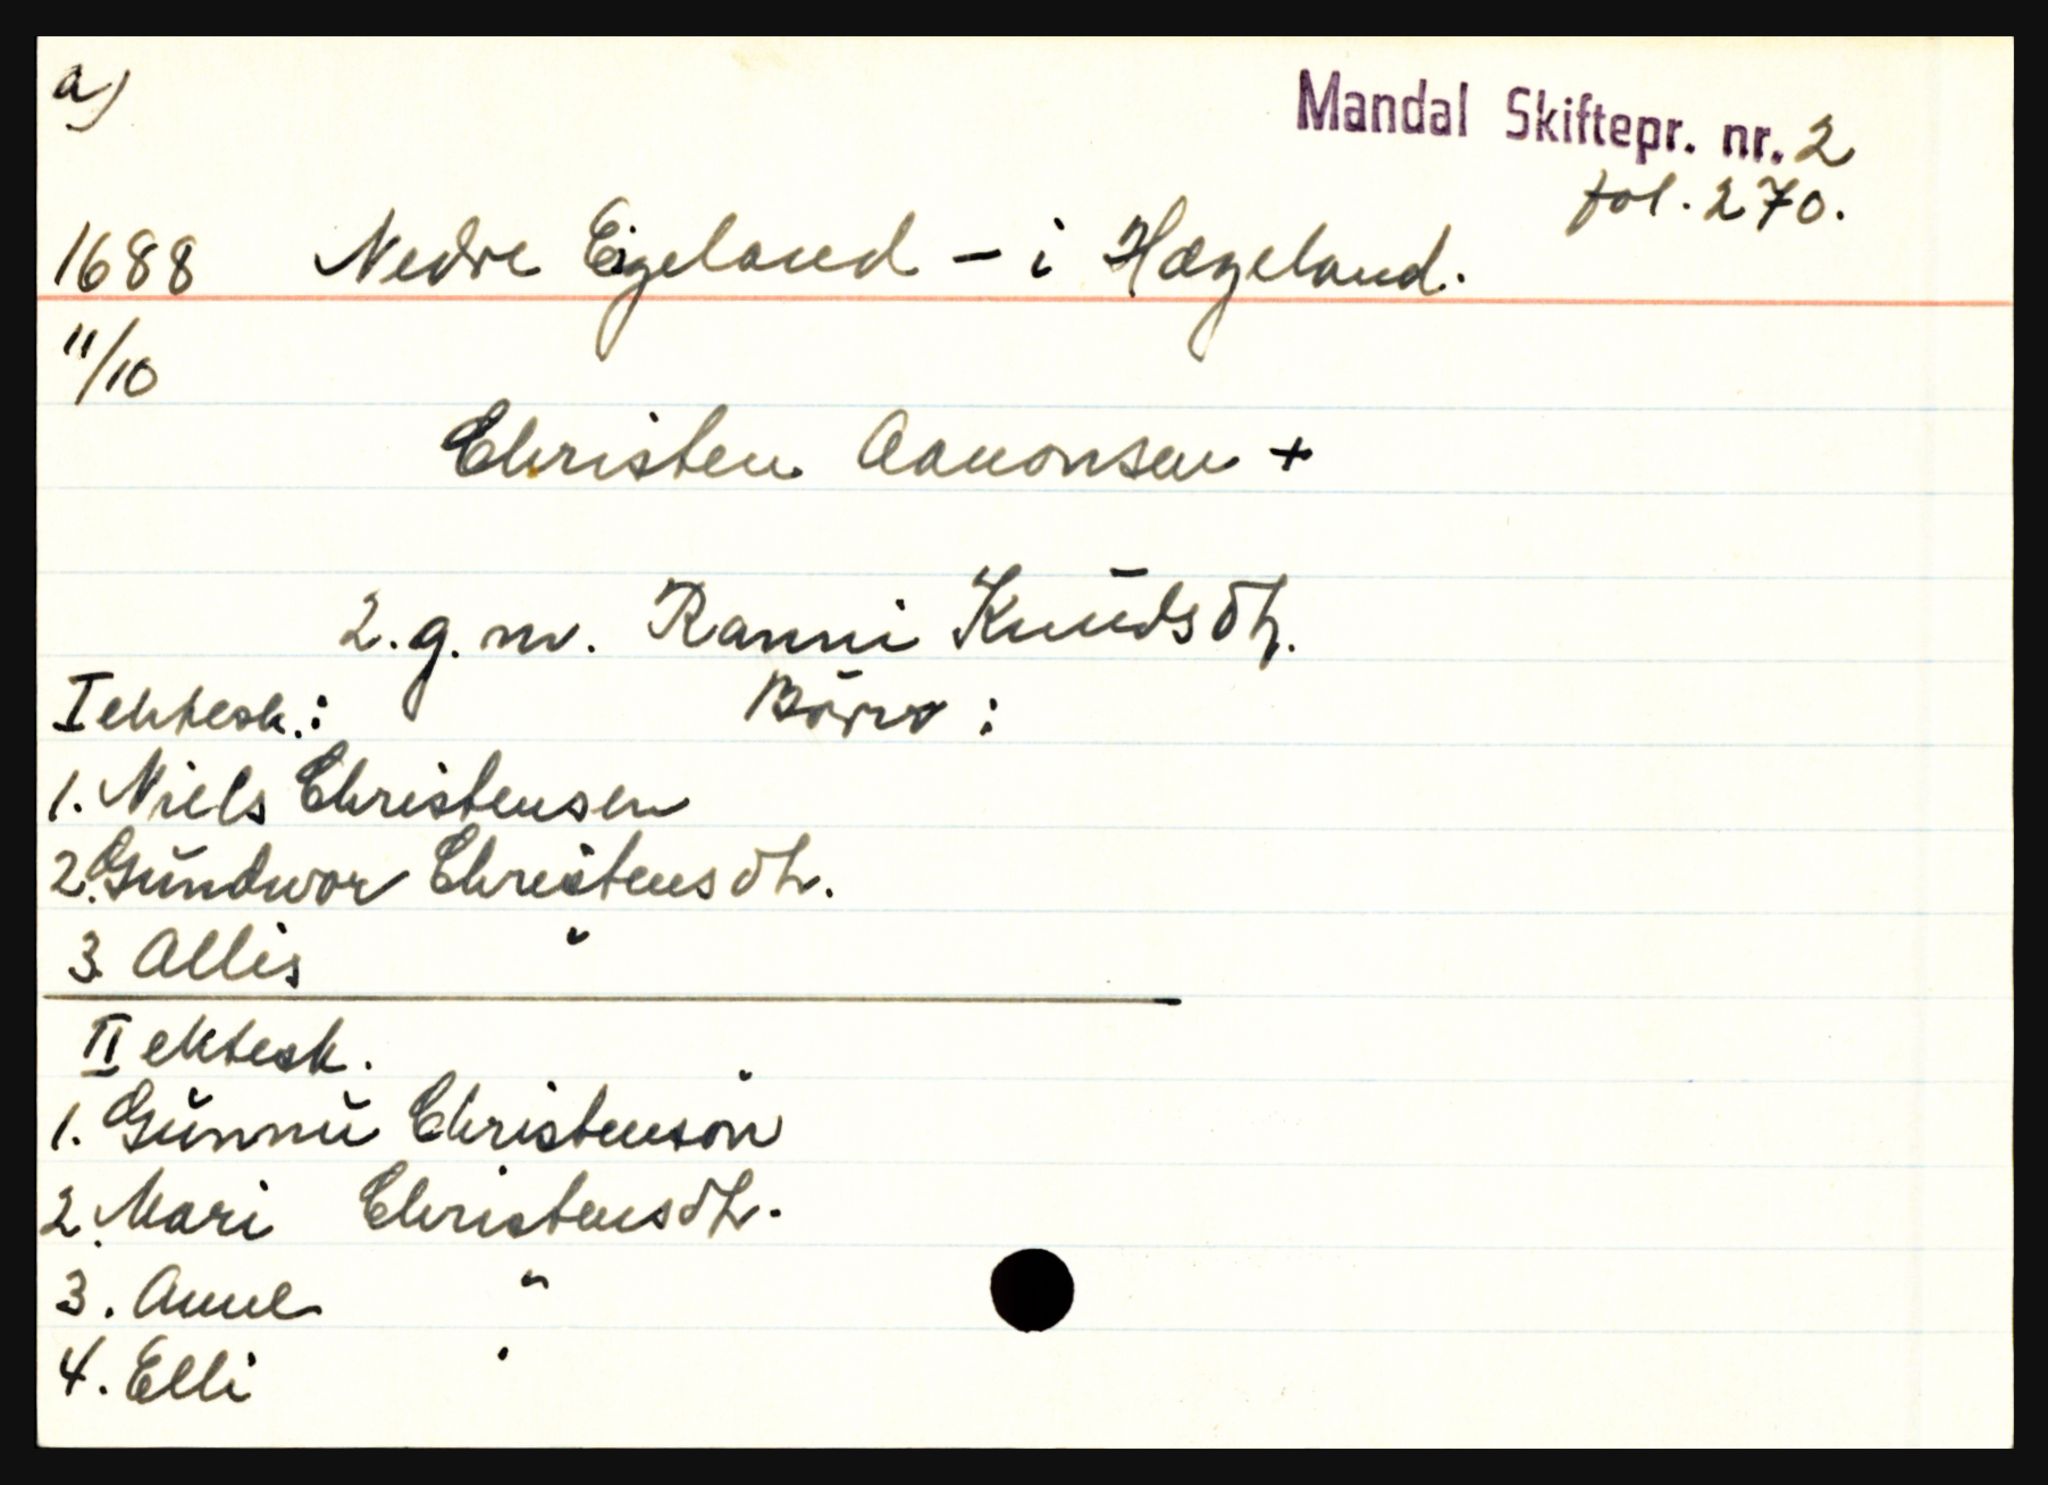 a)
Mandal Skiftepr. nr. 2
fol. 270.
1688 Nedre Eigeland - i Hægeland.
11/10
Christen Aanonsen +
2. g. m. Ranni Knudsdtr.
I ektesk.: Börn :
1. Niels Christensen
2. Gundwor Christensdtr.
3. Allis "
II ektesk.
1. Gunnu Christensøn
2. Mari Christensdtr.
3. Anne "
4. Elli "